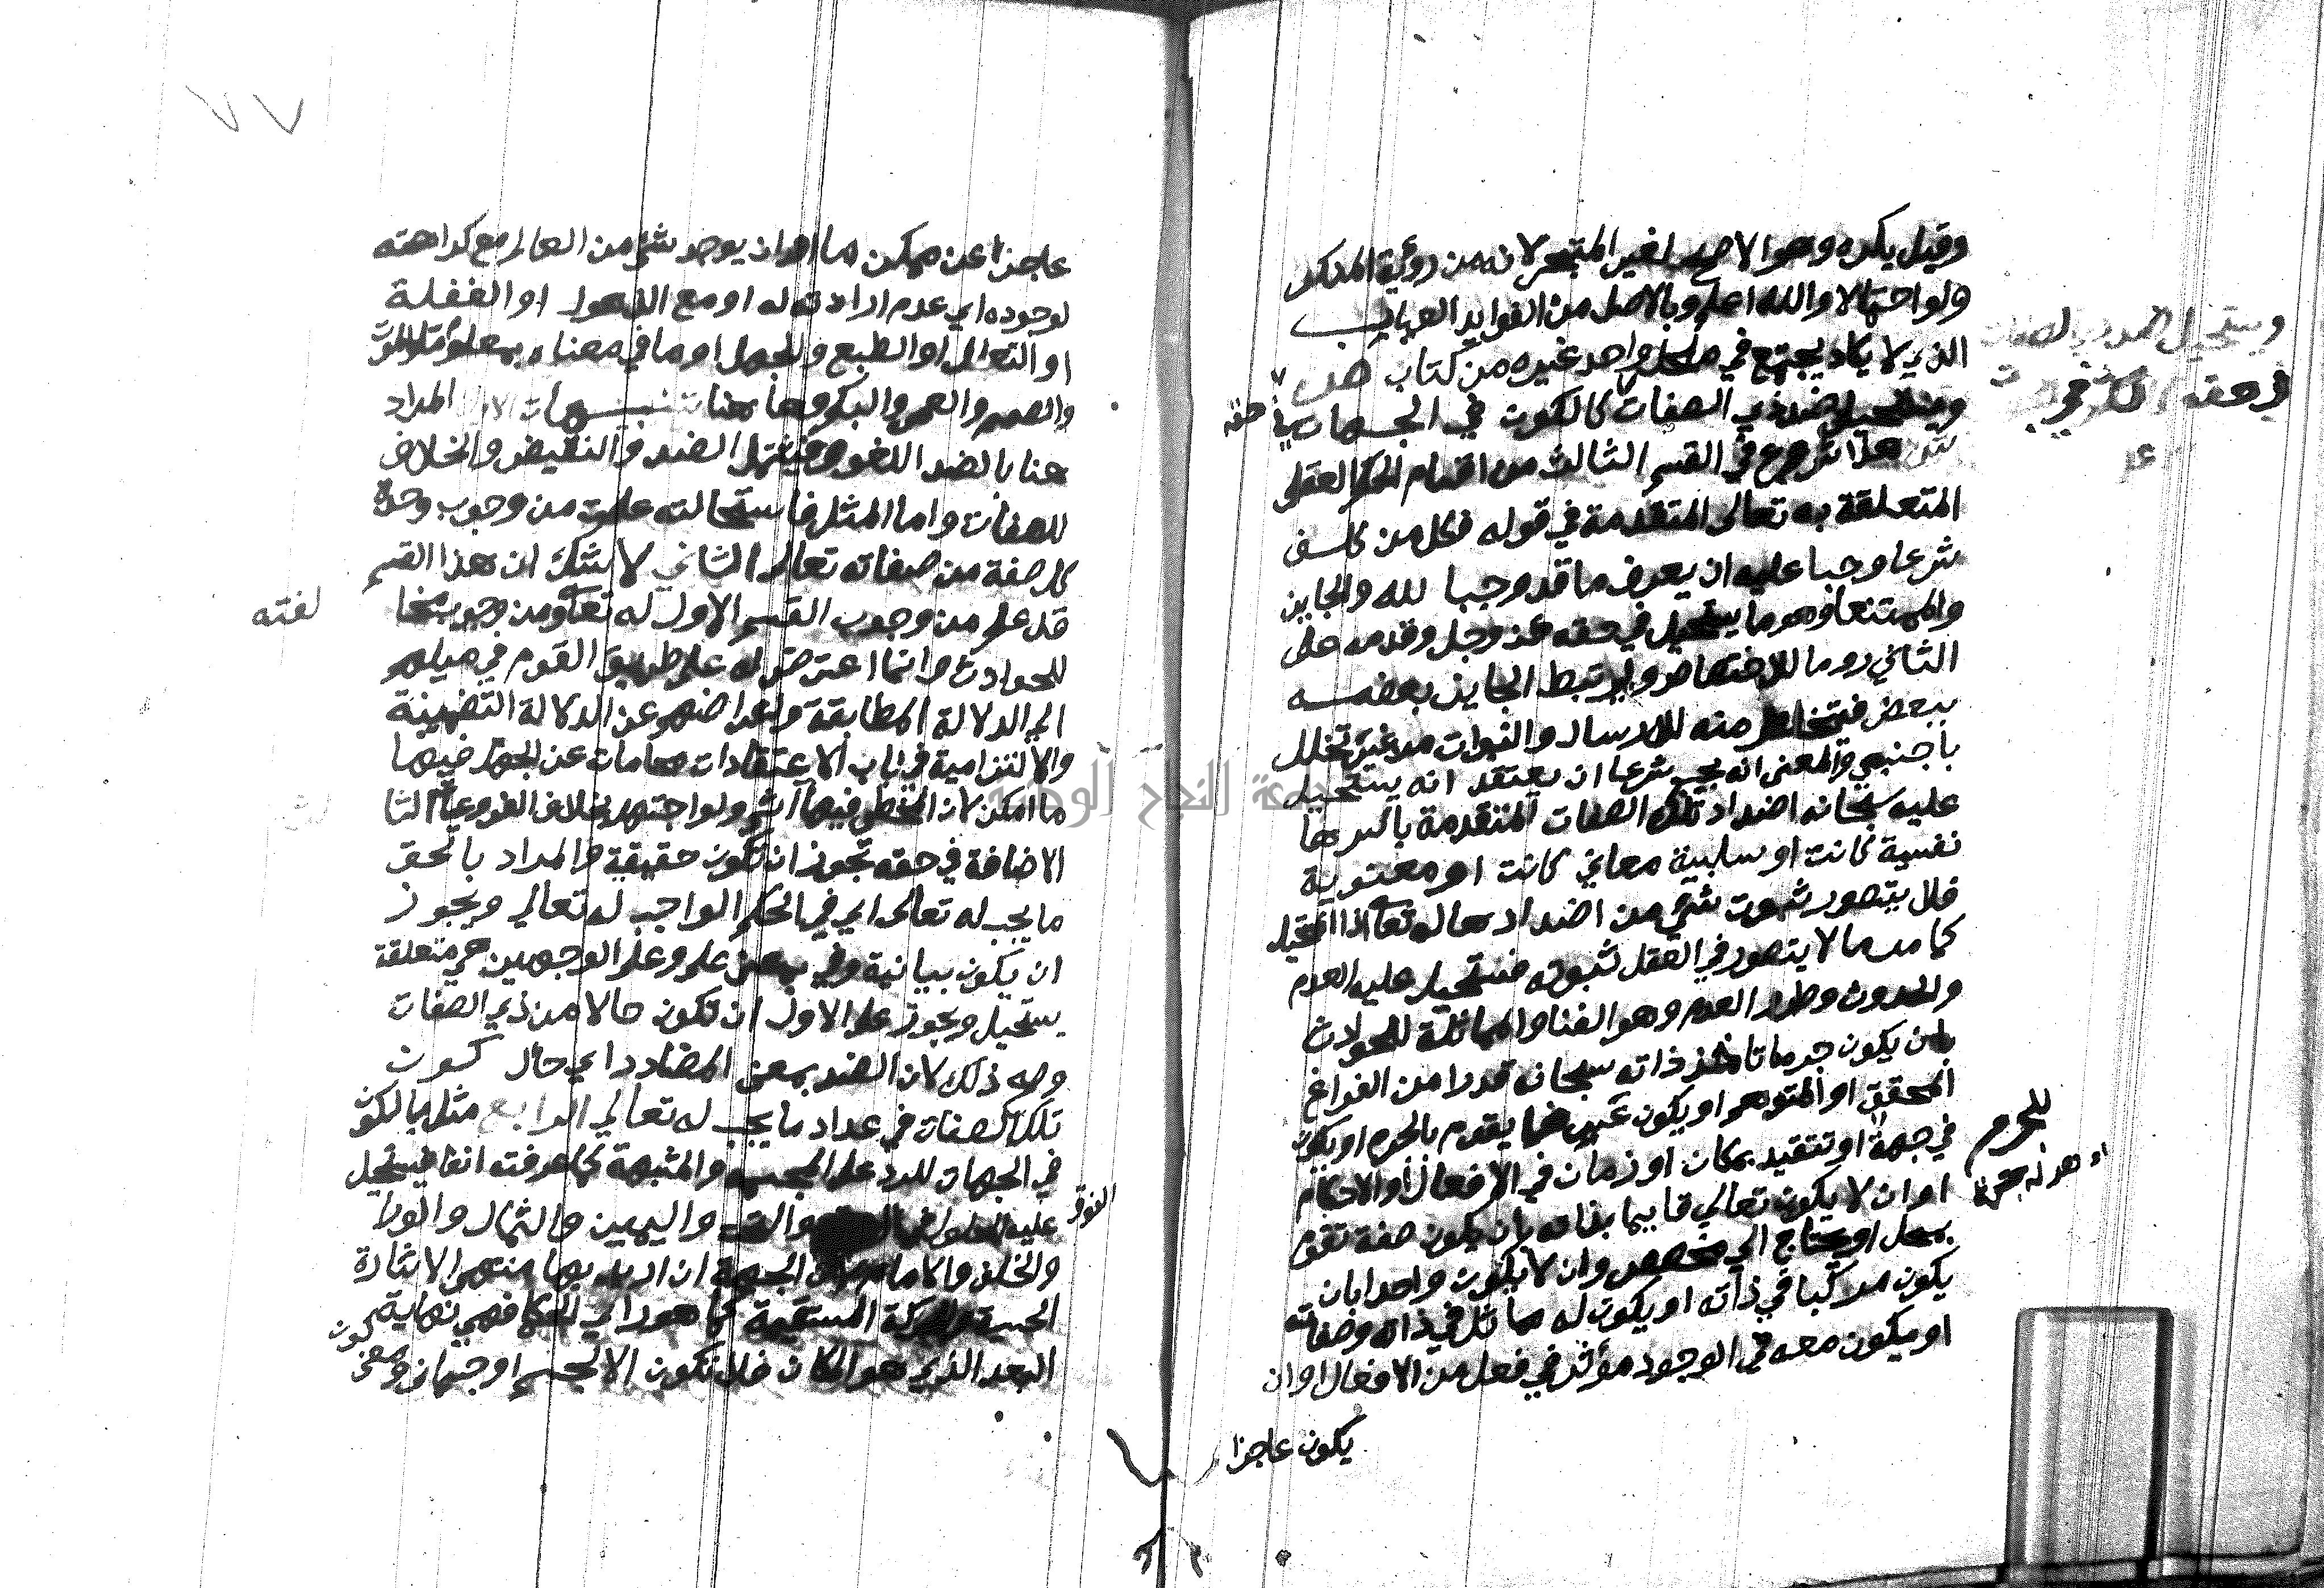 وقيل يكره وهو الاصح لغير المتبحر لانه من رؤية المذكور
ولو احتمالا والله اعلم وبالاصل من الفوايد العجايب
الذي لا يكاد يجتمع في محل واحد غيره من كتاب
ويستحيل ضد ذي الصفات في حقه كالكون في الجهات
هذا شروع في القسم الثالث من اقسام الحكم العقلي
المتعلقة به تعالى المتقدمة في قوله فكل من كلف
شرعا وجبا عليه ان يعرف ما قد وجبا لله والجايز
والممتنعا وهو ما يستحيل في حقه عز وجل وقدمه على
الثاني روما للاختصار وليرتبط الجايز بعضه
ببعض فتخلص منه للارسال والنبوات من غير تخلل
باجنبي والمعنى انه يجب شرعا ان يعتقد انه يستحيل
عليه سبحانه اضداد تلك الصفات المتقدمة باسرها
نفسية كانت او سلبية معاني كانت او معنوية
فلا يتصور ثبوت شيء من اضداد تعالى اذ المستحيل
كما مر ما لا يتصور في العقل ثبوته فيستحيل عليه العدم
والحدوث وطرو العدم وهو الفنا والمماثلة للحوادث
بان يكون جرما تاخذ ذاته سبحانه قدرا من الفراغ
المحقق او المتوهم او يكون عرضا يقوم بالجرم او يكون
في جهة للجرم او هو له جهة او تتقيد بمكان او زمان في الافعال او الاحكام
او ان لا يكون تعالى قايما بذاته بان يكون صفة تقوم
بمحل او يحتاج الى مخصص وان لا يكون واحدا بان
يكون مركبا في ذاته او يكون له مماثل في ذاته وصفاته
او يكون معه في الوجود مؤثر في فعل من الافعال او ان
يكون عاجزا
٧٧
عاجزا عن ممكن ما او ان يوجد شيء من العالم مع كراهته
لوجوده اي عدم ارادته له او مع الذهول او الغفلة
او التعالى او الطبع والجهل او ما في معناه بمعلوم والموت
والصمم والعمى والبكم وها هنا تنبيهات المراد
هنا بالضد اللغوي فيشمل الضد والنقيض والخلاف
للصفات واما المثل فاستحالته علمت من وجوب وحدة
كل صفة من صفاته تعالى الثاني لا شك ان هذا القسم
قد علم من وجوب القسم الاول له تعالى ومن وجوب مخالفته
للحوادث وانما اعترض له على طريق القوم في ميلهم
الى الدلالة المطابقة واعراضهم عن الدلالة التضمنية
والالتزامية في باب الاعتقادات محامات عن الجهل فيها
ما امكن لان المخطي فيها اثم ولو اجتهد بخلاف الفروعيات الثالث
الاضافة في حقه تجوز ان تكون حقيقية والمراد بالحق
ما يجب له تعالى اي في الحكم الواجب له تعالى ويجوز
ان يكون بيانية وفي بمعنى على وعلى الوجهين هي متعلقة
يستحيل ويجوز على الاول ان تكون حالا من ذي الصفات
وصح ذلك لان الضد بمعنى المضاد اي حال كون
تلك الصفات في عداد ما يجب له تعالى الرابع مثل بالكون
في الجهات للرد على المجسمة والمشبهة كما عرفته انفا فيستحيل
عليه الحلول في الفوق والتحت واليمين والشمال والورا
والخلف والامام لان الجهة ان اريد بها منتهى الاشارة
الحسية والحركة المستقيمة كما هو راي الحكما فهي نهاية
البعد الذي هو المكان فلا تكون الا لجسم او جسمان ومعنى كون